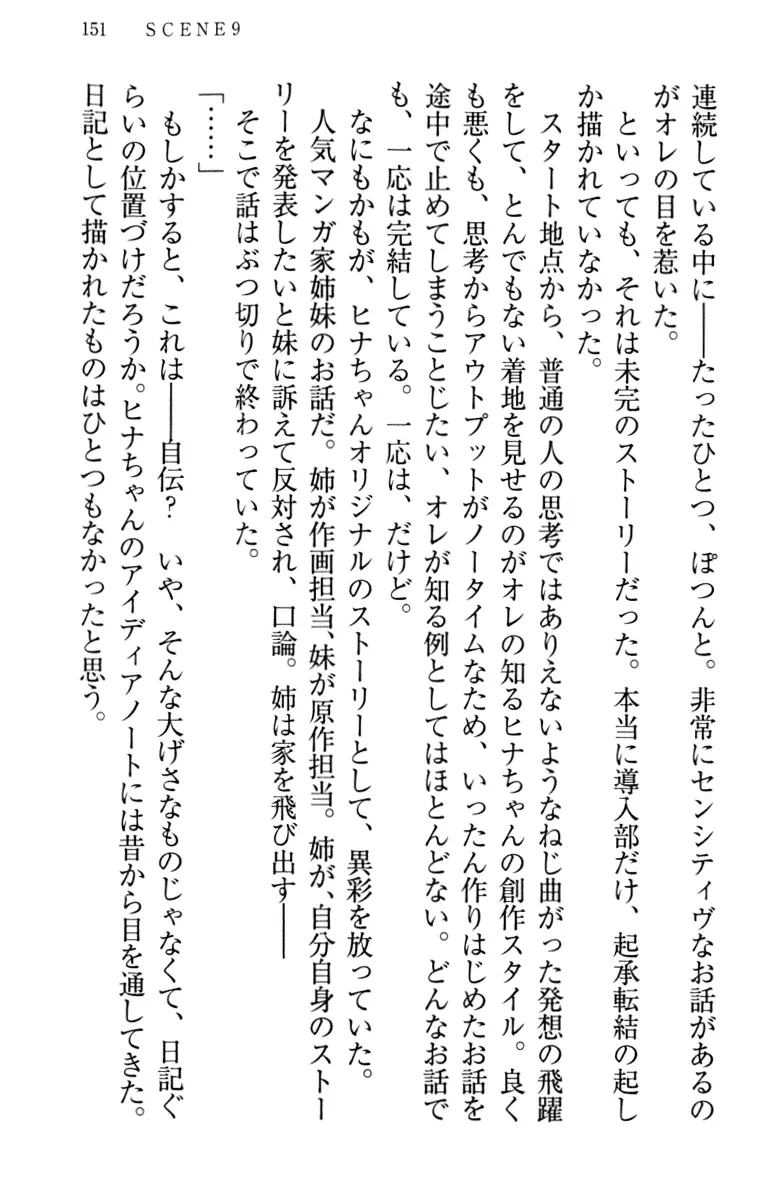 151 SCENE9
連続している中に――たったひとつ、ぽつんと。非常にセンシティヴなお話があるの
がオレの目を惹いた。
といっても、それは未完のストーリーだった。本当に導入部だけ、起承転結の起し
か描かれていなかった。
スタート地点から、普通の人の思考ではありえないようなねじ曲がった発想の飛躍
をして、とんでもない着地を見せるのがオレの知るヒナちゃんの創作スタイル。良く
も悪くも、思考からアウトプットがノータイムなため、いったん作りはじめたお話を
途中で止めてしまうことじたい、オレが知る例としてはほとんどない。どんなお話で
も、一応は完結している。一応は、だけど。
なにもかもが、ヒナちゃんオリジナルのストーリーとして、異彩を放っていた。
人気マンガ家姉妹のお話だ。姉が作画担当、妹が原作担当。姉が、自分自身のストー
リーを発表したいと妹に訴えて反対され、口論。姉は家を飛び出す――
そこで話はぶつ切りで終わっていた。
「……」
もしかすると、これは――自伝？　いや、そんな大げさなものじゃなくて、日記ぐ
らいの位置づけだろうか。ヒナちゃんのアイディアノートには昔から目を通してきた。
日記として描かれたものはひとつもなかったと思う。